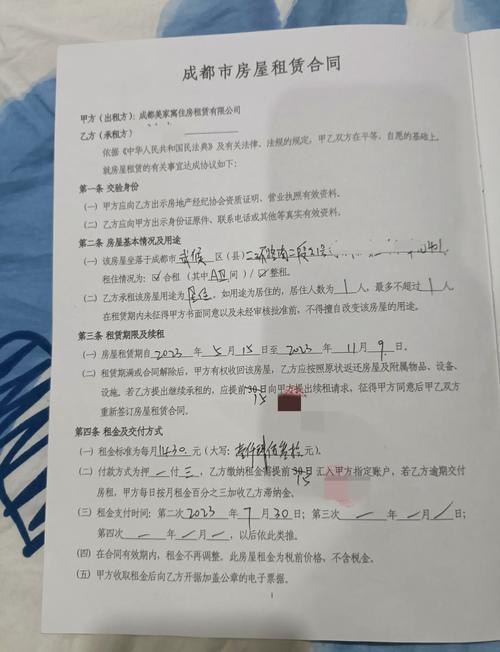 成都市房屋租赁合同
甲方（出租方）：成都美家寓住房租赁有限公司
乙方（承租方）
依据《中华人民共和国民法典》及有关法律、法规的规定，甲乙双方在平等、自愿的基础上，
就房屋租赁的有关事宜达成协议如下：
第一条 交验身份
（一）甲方应向乙方出示房地产经纪协会资质证明、营业执照等有效资料。
（二）乙方应向甲方出示身份证原件、联系电话或其他等真实有效资料。
第二条 房屋基本情况及用途
（一）该房屋坐落于成都市 武侯 区（县）二环路南二段
租住情况为：☑合租（其中A 间）/☑整租。
（二）乙方承租该房屋用途为 居住，如用途为居住的，居住人数为 1 人，最多不过 1 人。
在租赁期内未征得甲方书面同意以及未经审核批准前，不得擅自改变该房屋的用途。
第三条 租赁期限及续租
（一）房屋租赁期自 2023 年 5 月 15 日至 2023 年 11 月 9 日。
（二）租赁期满或合同解除后，甲方有权收回该房屋，乙方应按照原状返还房屋及附属物品、设备、
设施。若乙方提出继续承租的，应提前30日向甲方提出续租请求，征得甲方同意后甲乙双方
15
重新签订房屋租赁合同。
第四条 租金及交付方式
（一）租金标准为每月1430 元（大写：壹仟肆佰叁拾元）。
（二）付款方式为押 一 付 三，乙方缴纳租金需提前30日汇入甲方指定账户，若乙方逾期交付
15
房租，甲方每日按月租金百分之三加收乙方滞纳金。
（三）租金支付时间：第二次 2023 年 7 月 30 日；第三次 — 年 — 月 — 日；
第四次 — 年 — 月 — 日，以后依此类推。
（四）在合同有效期内，租金不再调整。此房屋租金为税前价格，不含税金。
（五）甲方收取租金后向乙方开据加盖公章的电子票据。
1